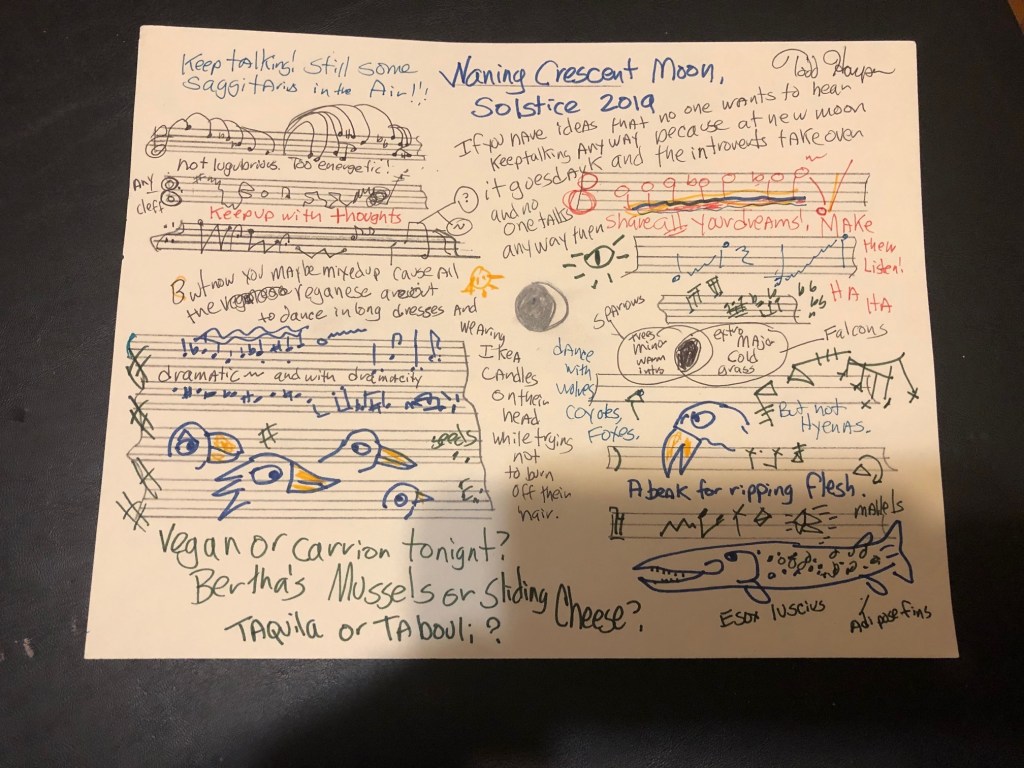 Keep talking! Still some
Saggitarius in the Air!!!
Waning Crescent Moon,
Solstice 2019
Todd Harper
not lugubrious. Too energetic!
Any
cleff
Keep up with thoughts
?
If you have ideas that no one wants to hear
Keep talking Anyway because at new moon
it goes dark and the introverts take over
and no
one talks
anyway then
Share all your dreams! Make
them
Listen!
HA
HA
But now you maybe mixed up cause All
the veganese are out
to dance in long dresses And
weAring
Ikea
CAndles
on their
head
while trying
not
to burn
off their
hair.
dramatic and with dramocity
seeds
Vegan or carrion tonight?
Bertha's Mussels or Sliding Cheese?
TAquila or TAbouli?
Sparrows
Trees
Minor
warm
intro
extro
MAjor
Cold
grass
Falcons
dance
with
wolves
Coyotes,
Foxes.
But not
Hyenas.
A beak for ripping flesh.
mallets
Esox luscius
Adipose fins